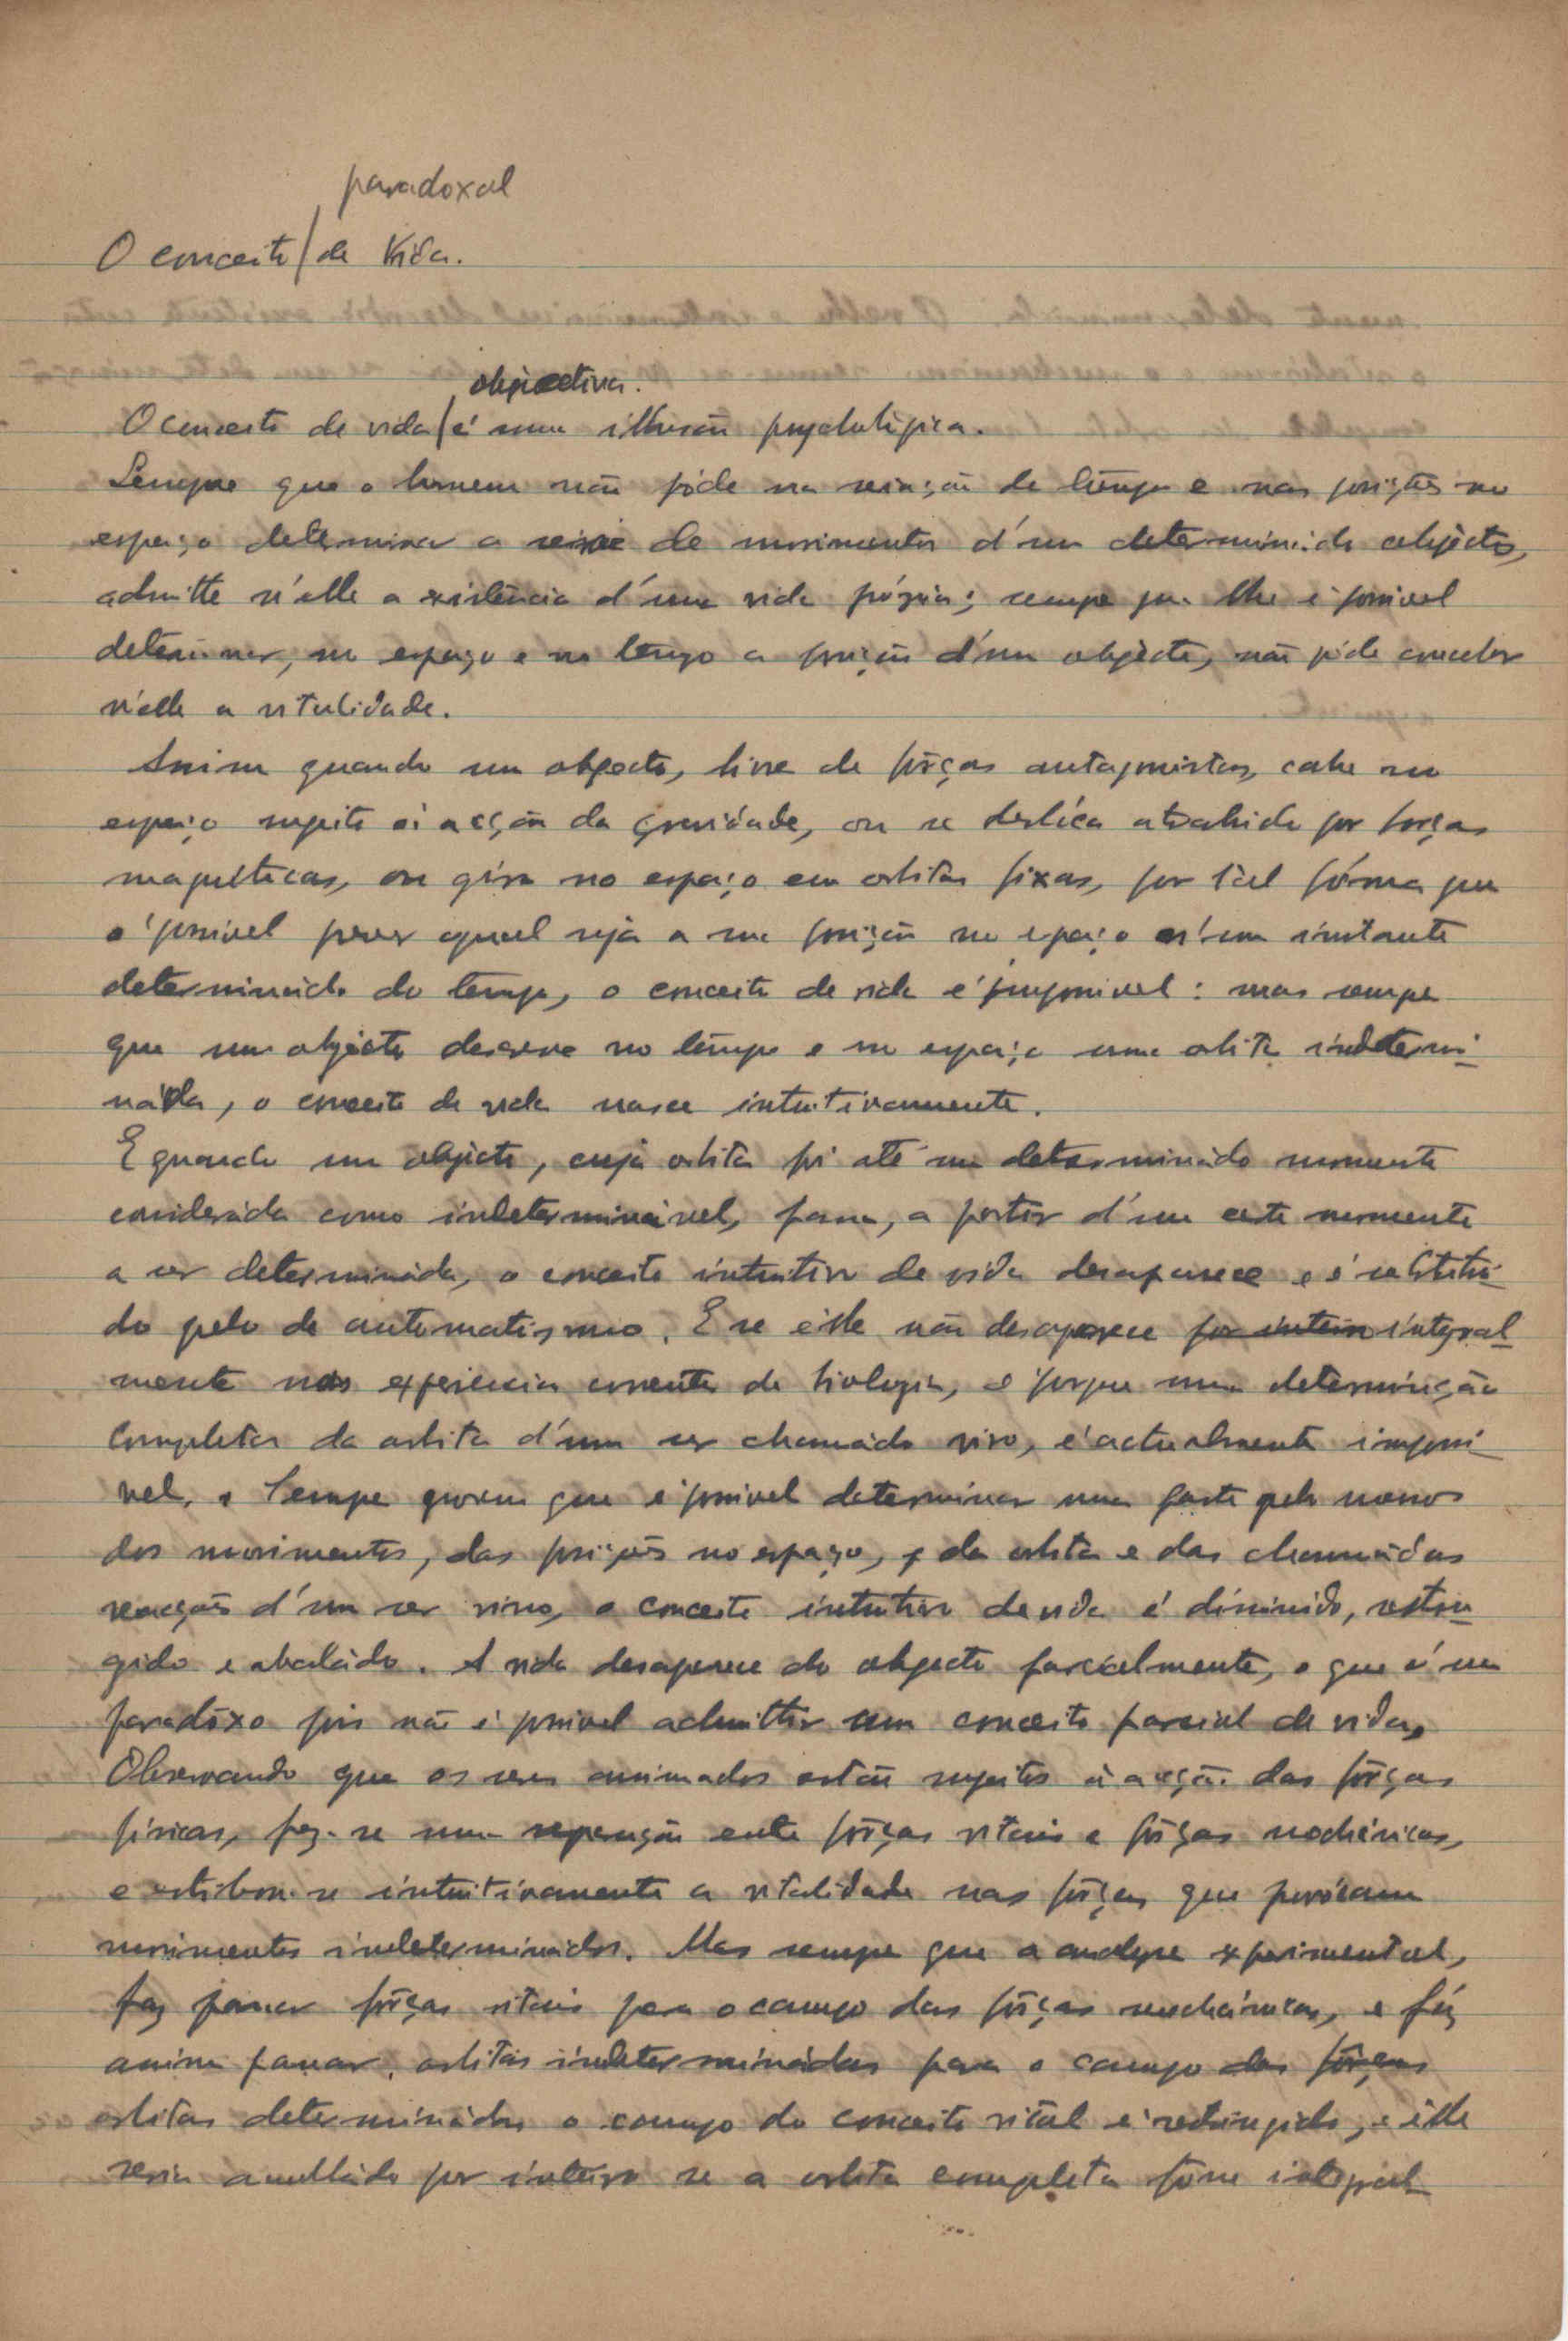 paradoxal
O conceito / de Vida.
objectiva.
O conceito de vida / é uma illusão psychologica.
Sempre que o homem não póde na de tempo e nas posições no
espaço determinar a serie de movimentos d'um determinado objecto,
admitte n'elle a existência d'uma vida própria; sempre que lhe é possivel
determinar, no espaço e no tempo a posição d'um objècto, não póde conceber
n'elle a vitalidade.
Assim quando um objecto, livre de fôrças antagonistas, cahe no
espaço sugeito á acção da gravidade, ou se deslóca atrahido por forças
magneticas, ou gira no espaço em orbitas fixas, por tàl fórma que
é possivel prever qual sejà a sua posição no espaço n'um instante
determinado do tempo, o conceito de vida é impossivel: mas sempre
que um objècto descreve no tempo e no espaço uma orbita indetermi-
nàda, o conceito de vida nasce intuitivamente.
E quando um objècto, cujà orbita foi até um determinàdo momento
consideràda como indeterminàvel, passa, a partir d'um certo momento
a ser determinàda, o conceito intuitivo de vida desaparece e é substitui-
do pelo de automatismo. E se êlle não desaparece por inteiro integral-
mente nas experiencia corrente da biologia, é porque uma determinação
completa da orbita d'um ser chamàdo vivo, é actualmente impossi-
vel. Sempre porem que é possivel determinar uma parte pelo menos
dos movimentos, das posições no espaço, da orbita e das chamàdas
reacções d'um ser vivo, o conceito intuitivo de vida é diminuido, restrin-
gido e abalàdo. A vida desaparece do objecto parcialmente, o que é um
paradóxo pois não é possivel admittir um conceito parcial de vida.
Observando que os seres animados estão sugeitos à acção das fôrças
fisicas, faz-se uma separação entre fôrças vitais e fôrças mechânicas,
e intuitivamente a vitalidade nas fôrças que provócam
movimentos indeterminàdos. Mas sempre que a analyse experimental,
faz passar fôrças vitais para o campo das fôrças mechànicas, e fáz
assim passar orbitas indeterminàdas para o campo das fôrças
orbitas determinàdas o campo do conceito vitàl é restringido, e êlle
seria anullàdo por inteiro se a orbita completa fôsse integral-